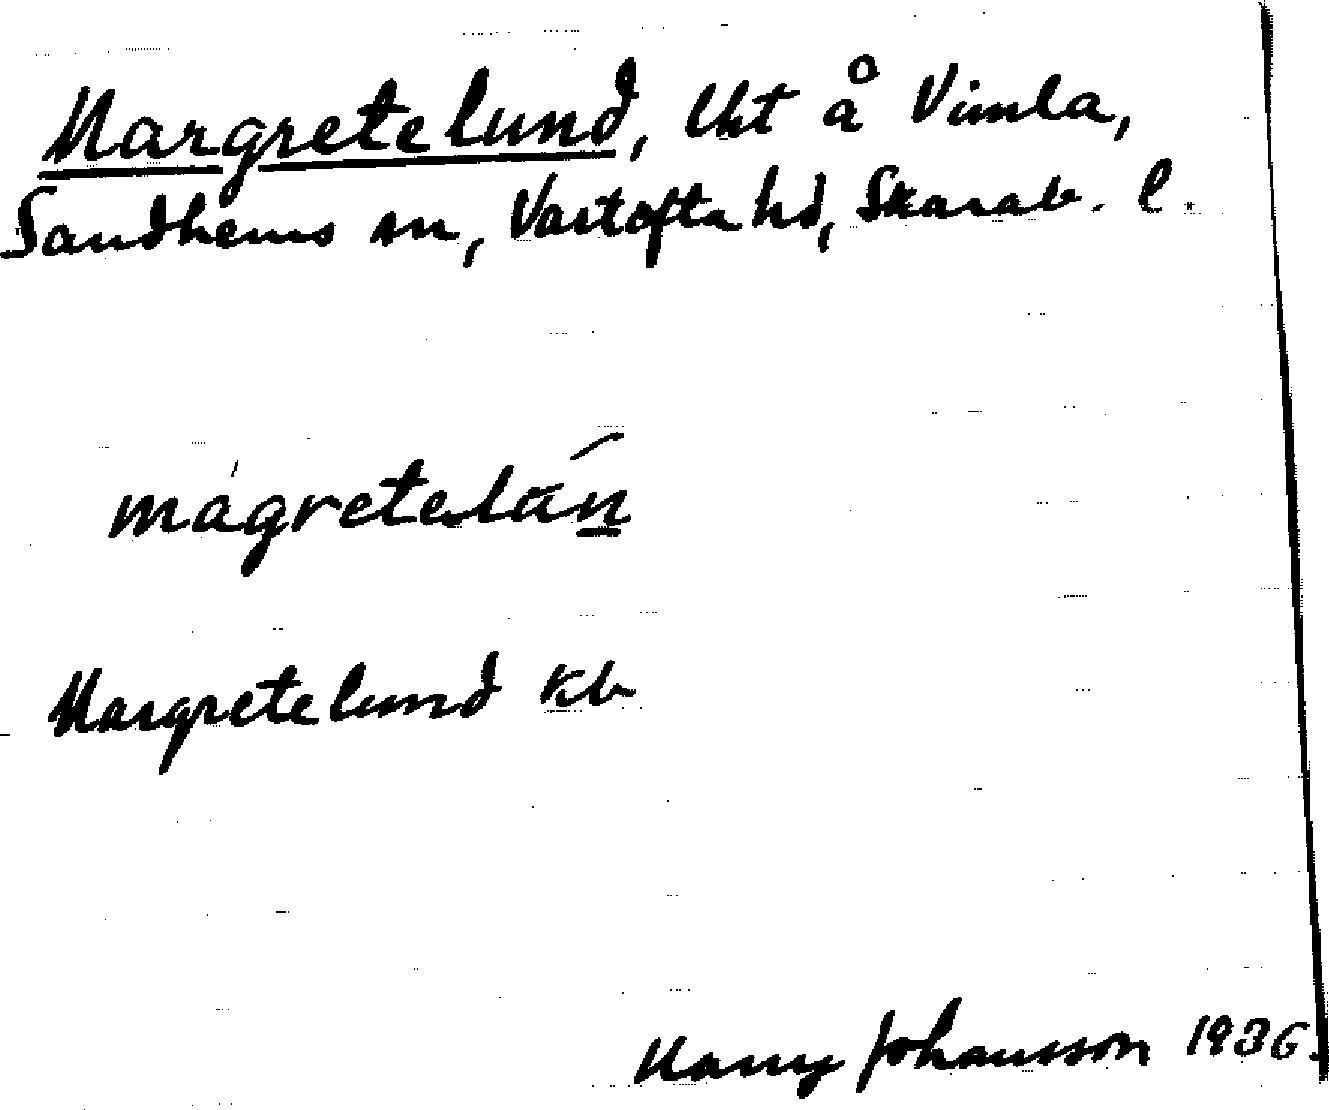 Margretelund, Uht å Vimla,
Sandhems sn, Vartofta hd, Skarab. l.
mágretelún
Margretelund kb
Harry Johansson 1936.